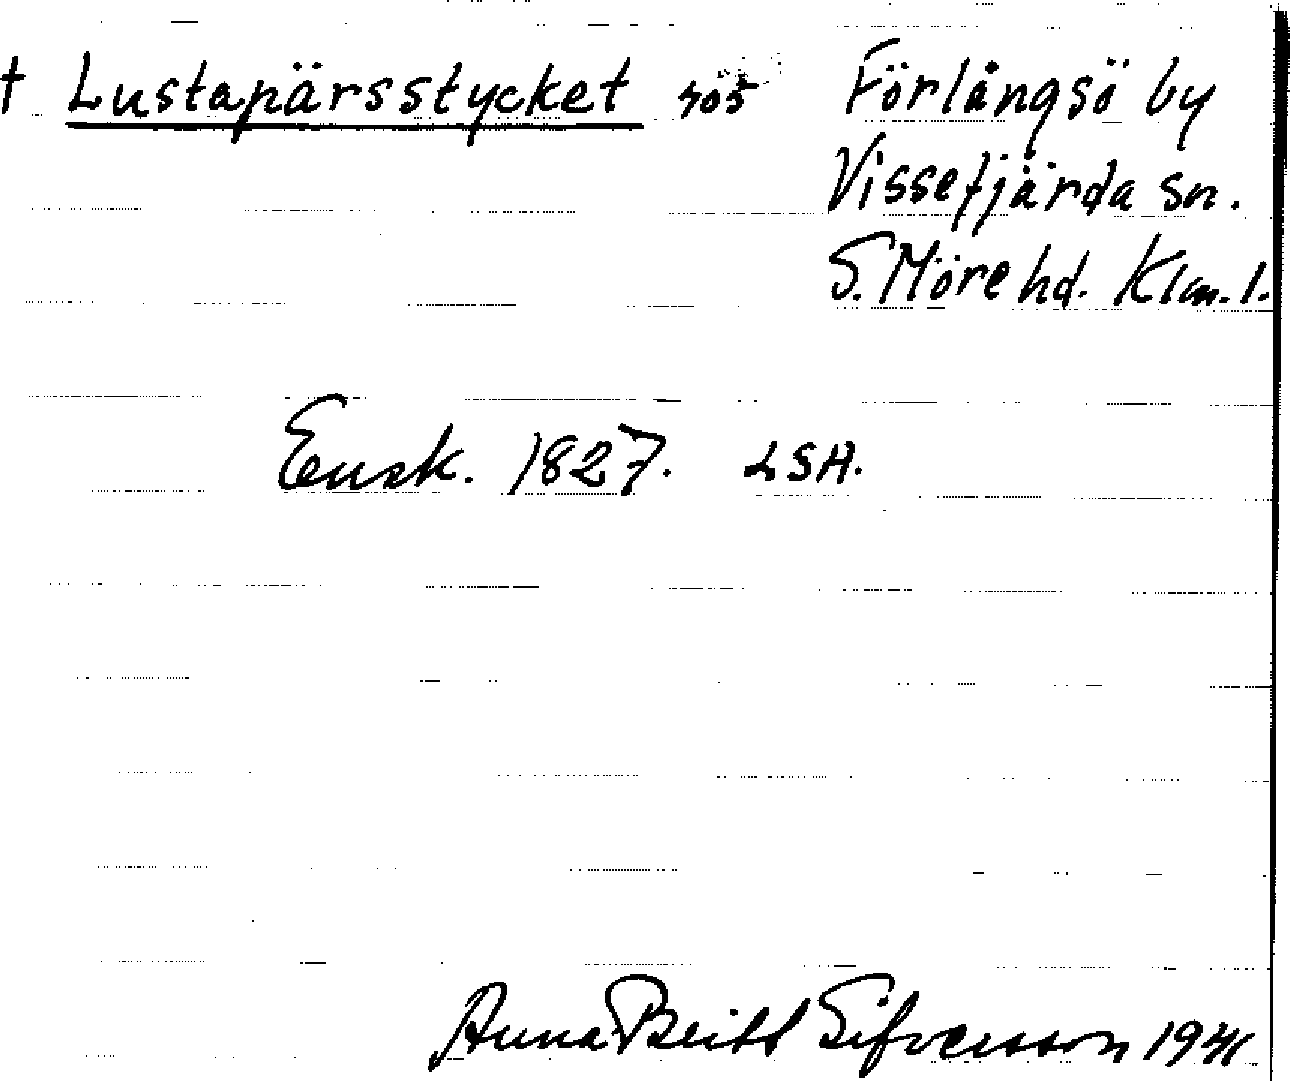 † Lustapärsstycket 405 Förlångsö by
Vissefjärda sn.
S. Möre hd. Klm. l.
Ensk. 1827. LSA.
Anna-Britt Sifversson 1941